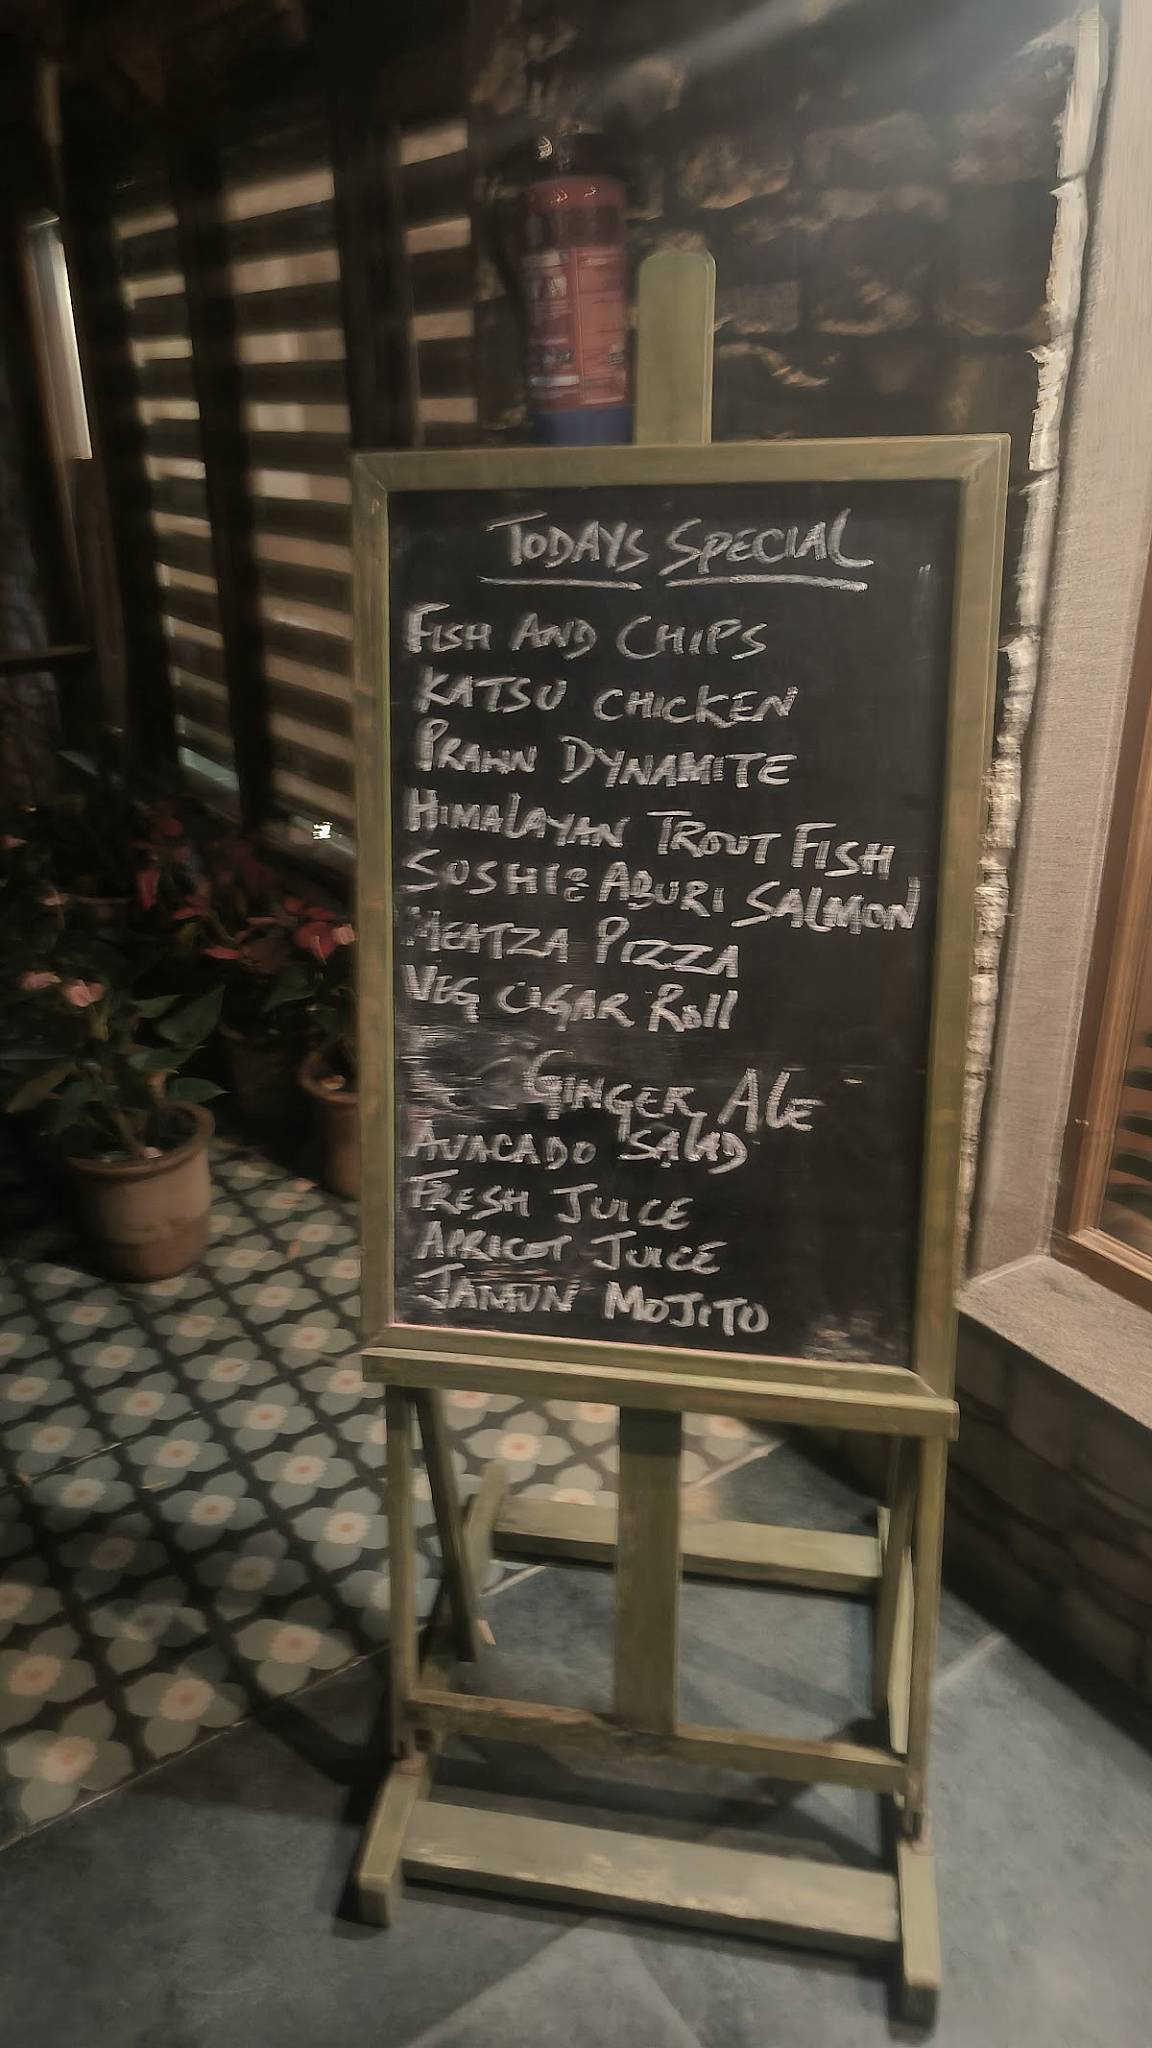 TODAYS SPECIAL
FISH AND CHIPS
KATSU CHICKEN
PRAWN DYNAMITE
HIMALAYAN TROUT FISH
SUSHI & ABURI SALMON
MEATZA PIZZA
VEG CIGAR Roll
GINGER ALE
AVACADO SALAD
FRESH JUICE
APRICOT JUICE
JAMUN MOJITO